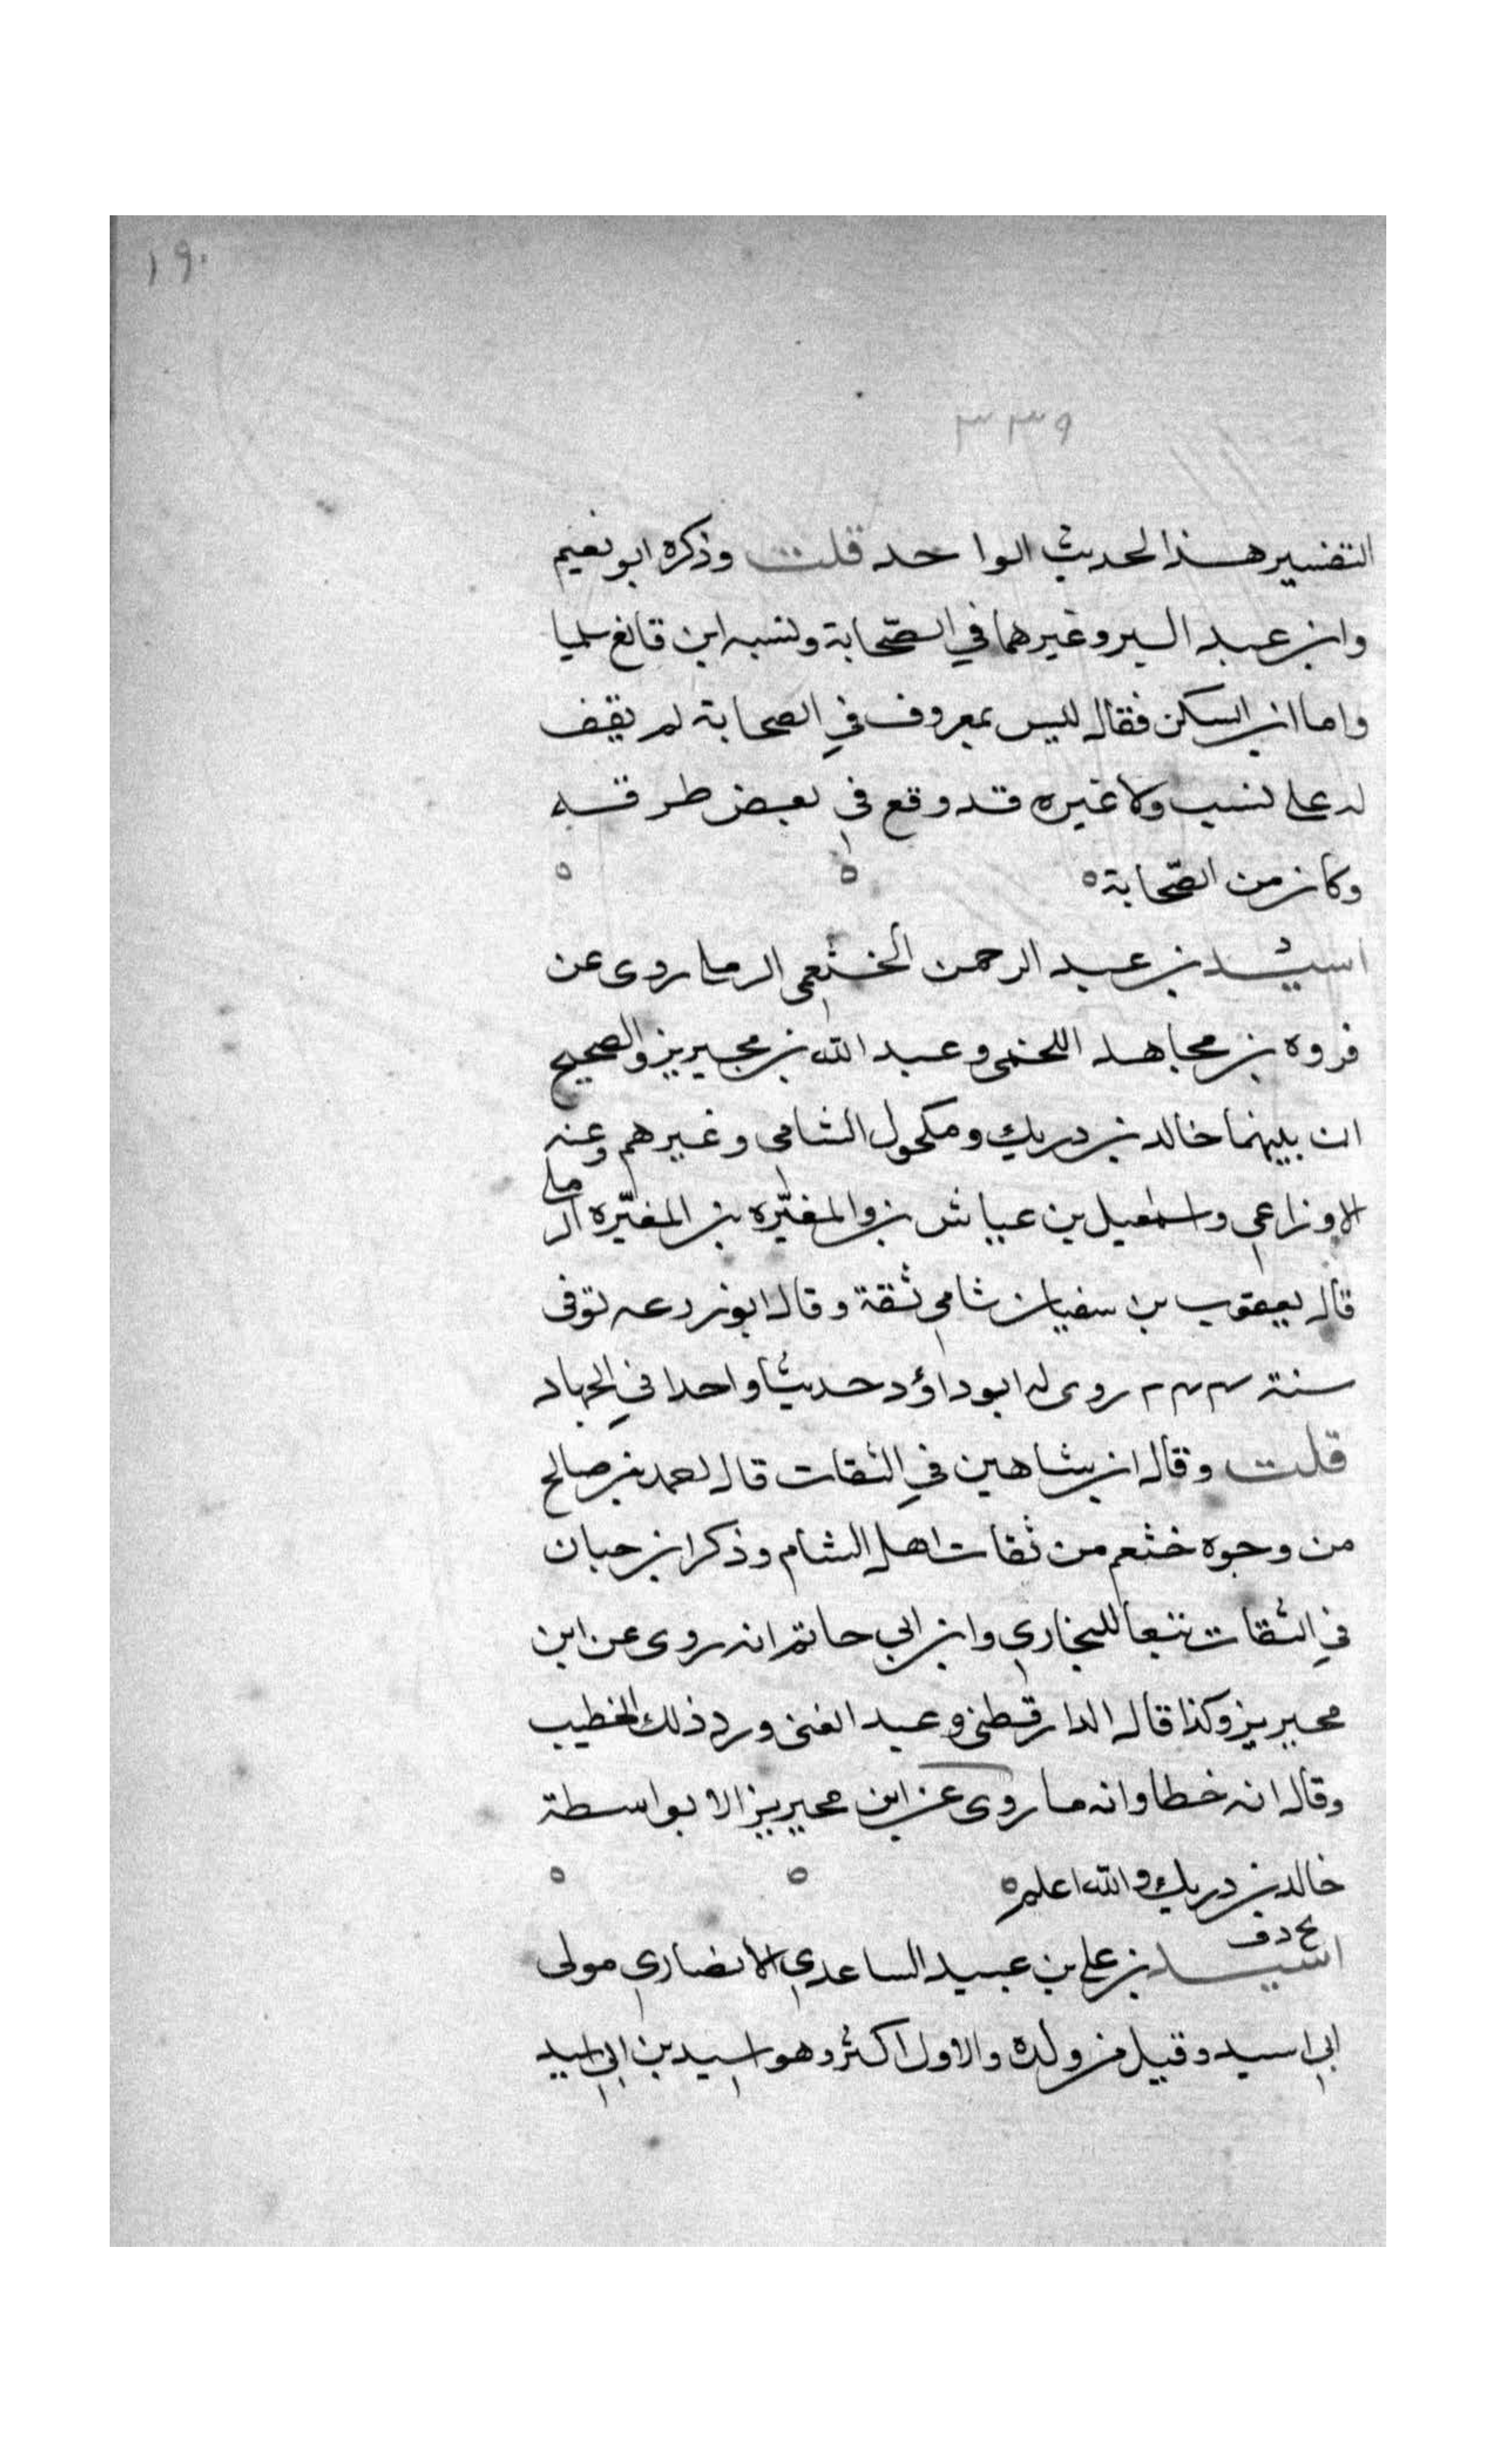 ١٩٠
٣٣٩
التفسير هذا الحديث الواحد قلت وذكره ابو نعيم
وابن عبد البر وغيرهما في الصّحابة ونسبه ابن قانع سلميا
واما ابن السكن فقال ليس بمعروف في الصحابة لم يقف
له على نسب ولا غيره قد وقع في بعض طرقه
وكان من الصّحابة ه ه ه
د
اسيد بن عبد الرحمن الخثعمي الرملي روى عن
فروه بن مجاهد اللخمي وعبد الله بن محيريز والصحيح
ان بينهما خالد بن دريك ومكحول الشامي وغيرهم وعنه
الاوزاعي واسمعيل بن عياش بن والمغيّره بن المغيّره الرملي
قال يعقوب بن سفيان شامي ثقة وقال ابو زرعه توفى
سنة روى له ابو داؤد حديثا واحدا في الجهاد
قلت وقال ابن شاهين في الثقات قال احمد بن صالح
من وجوه خثعم من ثقات اهل الشام وذكر ابن حبان
في الثقات تبعا للبخاري وابن ابي حاتم انه روى عن ابن
محيريز وكذا قال الدارقطني وعبد الغني ورد ذلك الخطيب
وقال انه خطا وانه ما روى عن ابن محيريز الا بواسطة
خالد بن دريك والله اعلم ه ه ه
بخ د ق
اسيد بن علي بن عبيد الساعدي الانصاري مولى
ابي اسيد وقيل من ولده والاول اكثر وهو اسيد بن ابي اسيد